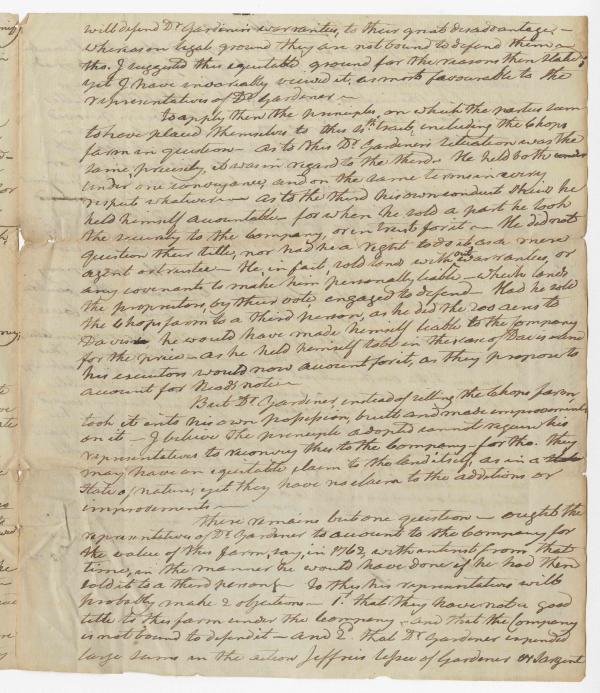 will defend Dr Gardeners warranties, to their great disadvantage, –
whereas on legal ground they are not bound to defend them –
tho. I suggested this equitable ground for the reasons then stated
yet I have invariably viewed it, as most favourable to the
representatives of Dr. Gardener. –
To apply then the principles, on which the parties seem
to have placed themselves to this 4th tract, including the Chops
farm in question – as to this Dr. Gardener's situation was the
same, precisely, it was in regard to the third. He held both
under one conveyance, and on the same terms in every
respect whatever – as to the third his own conduct shews he
held himself accountable – for when he sold a part he took
the security to the Company, or in trust for it – He did not
question their title, nor had he a right to do it as a mere
agent or trustee – He, in fact, sold lands without warranties, or
any covenants to make him personally liable – which lands
the proprietors, by their vote engaged to defend – Had he sold
the Chops farm to a third person, as he did the 200 acres to
Davis he would have made himself liable to the Company
for the price – as he held himself to be in the case of Davis – and
his executors would now account for it, as they propose to
account for Neads note –
But Dr. Gardiner, instead of selling the Chops farm
took it into his own possession, built and made improvements
on it – I believe the principle adopted cannot require his
representatives to reconvey this to the Company – for tho. they
may have an equitable claim to the land itself, as in a
state of nature, yet they have no claim to the additions or
improvements –
There remains but one question – ought the
representatives of Dr Gardener to account to the Company for
the value of this farm, say, in 1762, with interest from that
time, in the manner he would have done if he had then
sold it to a third person? To this his representatives will
probably make 2 objections – 1st that they have not a good
title to this farm under the Company – and that the Company
is not bound to defend it – and 2d that Dr Gardener expended
large sums in the action Jeffries lessee of Gardener vs Sargent